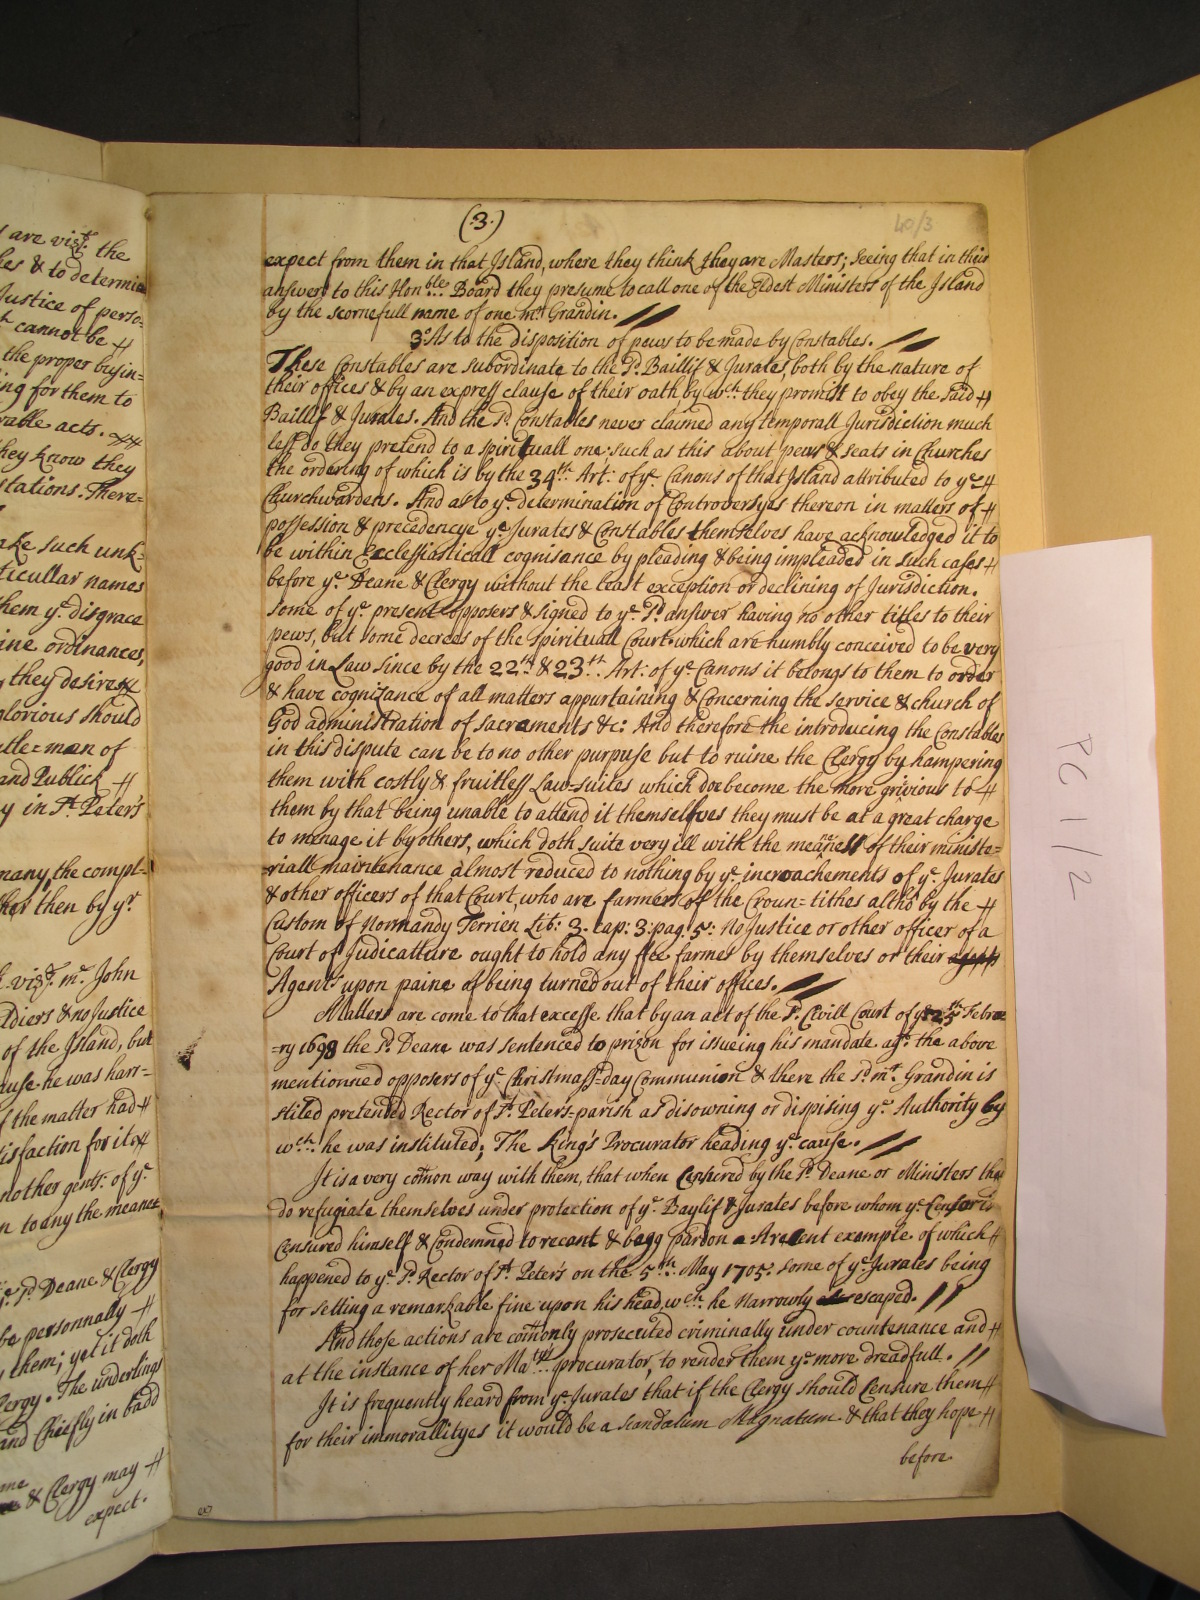 t are vist. the
hes & to determin
Justice of perso=
t cannot be
the proper busin=
ing for them to
rable acts.
they know they
stations. There=
ake such unk-
ticullar names
them ye. disgrace
ine ordinances,
they desire
glorious should
utle=man of
and Publick
y in St. Peter's
many, the compl-
her then by yr
vist. mr. John
ldiers & no Justice
of the Island, but
use he was harr=
the matter had
isfaction for it
nother gents: of ye.
n to any the meanest
sd. Deane & Clergy
be personnally
them; yet it doth
Clergy. The underlings
and Chiefly in badd
me & Clergy may
expect.
(3.)
40/3
expect from them in that Island, where they think they are Masters; seeing that in their
answer to this Honble: Board they presume to call one of the Eldest Ministers of the Island
by the scornefull name of one mr. Grandin.
3o. As to the disposition of pews to be made by Constables.
These Constables are subordinate to the sd. Baillif & Jurates, both by the nature of
their offices & by an express clause of their oath by wch. they promise to obey the said
Baillif & Jurates. And the sd. Constables never claimed any temporall Jurisdiction much
less do they pretend to a spirituall one, such as this about pews & seats in Churches
the ordering of which is by the 34th. Art: of ye. Canons of that Island attributed to ye
Churchwardens. And as to ye. determination of Controversyes thereon in matters of
possession & precedencye ye. Jurates & Constables themselves have acknowledged it to
be within Ecclessiasticall cognisance by pleading & being impleaded in such cases
before ye. Deane & Clergy without the least exception or declining of Jurisdiction.
Some of ye. present opposers & signed to ye. sd. answer having no other titles to their
pews, but some decrees of the Spirituall Court which are humbly conceived to be very
good in Law since by the 22th. & 23th. Art: of ye. Canons it belongs to them to order
& have cognizance of all matters appurtaining & Concerning the service & church of
God administration of sacraments &c: And therefore the introducing the Constables
in this dispute can be to no other purpuse but to ruine the Clergy by hampering
them with costly & fruitless Law-suites which doe become the more grivious to
them by that being unable to attend it themselves they must be at a great charge
to menage it by others, which doth suite very ill with the meanness of their ministe=
=riall maintenance almost reduced to nothing by ye. incroachements of ye. Jurates
& other officers of that Court, who are farmers of the Croun=tithes altho by the
Custom of Normandy Terrien Lib: 3. cap: 3: pag: 5: No Justice or other officer of a
Court of Judicatture ought to hold any fee farmes by themselves or their
Agents upon paine of being turned out of their offices.
Matters are come to that excesse that by an act of the sd. Civill Court of ye 25th. Febru=
=ry 1698 the sd. Deane was sentenced to prison for issueing his mandate agt. the above
mentionned opposers of ye. Christmass=day Communion & there the sd. mr. Grandin is
stiled pretended Rector of St. Peter's-parish as disowning or dispising ye. Authority by
wch. he was instituted; The King's Procurator heading ye. cause.
It is a very com̄on way with them, that when Censured by the sd. Deane or Ministers they
do refugiate themselves under protection of ye. Baylif & Jurates before whom ye. Censor is
Censured himself & Condemned to recant & begg pardon a Recent example of which
happened to ye. sd. Rector of St. Peter's on the 5th. May 1705: some of ye. Jurates being
for setting a remarkable fine upon his head, wch. he Narrowly escaped.
And those actions are com̄only prosecuted criminally under countenance and
at the instance of her Matys. procurator, to render them ye. more dreadfull.
It is frequently heard from ye. Jurates that if the Clergy should Censure them
for their immorallityes it would be a scandalum Magnatum & that they hope
before.
PC 1/2